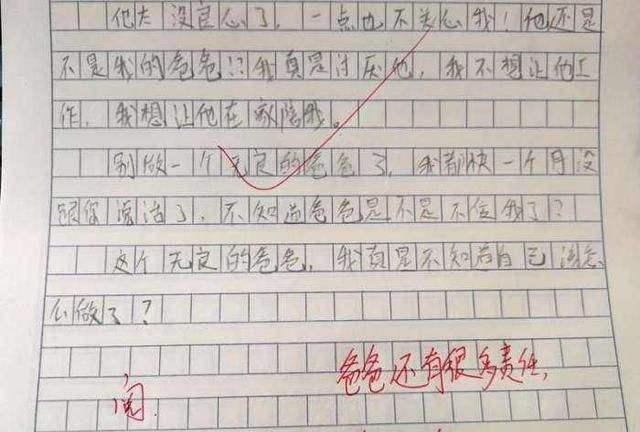 他太没良心了，一点也不关心我！他还是
不是我的爸爸!?我真是讨厌他，我不想让他工
作，我想让他在家陪我。
别做一个无良的爸爸了，我都快一个月没
跟你说话了，不知道爸爸是不是不信我了？
这个无良的爸爸，我真是不知道自己该怎
么做了？
爸爸还有很多责任，
阅